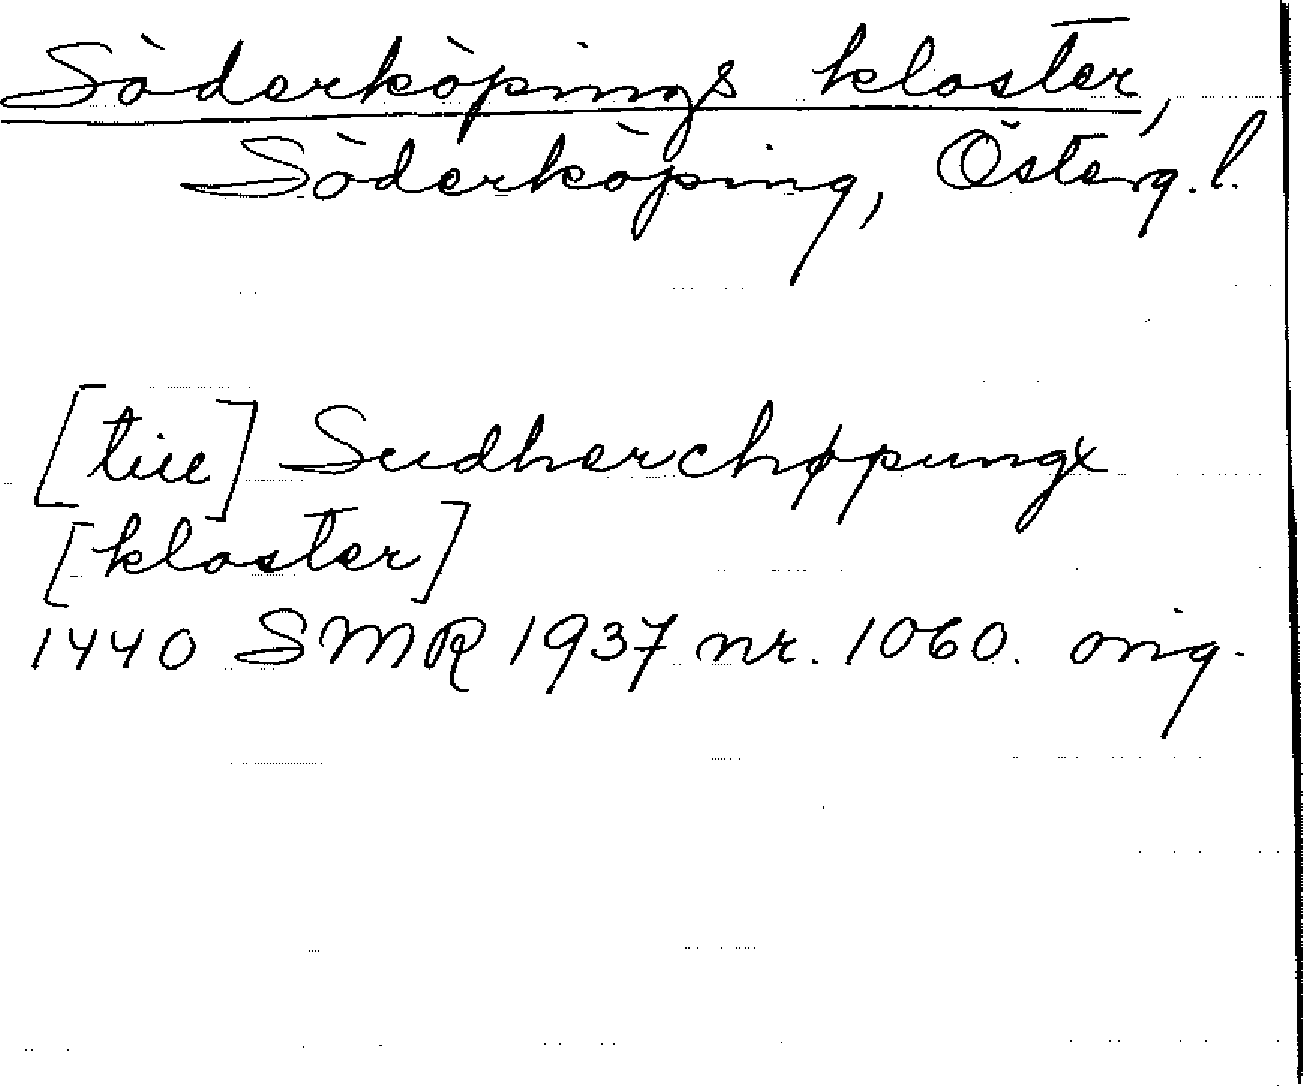 Söderköpings kloster,
Söderköping, Österg.l.
[till] Sudherchøpungx
[kloster]
1440 SMR 1937 nr. 1060. orig.